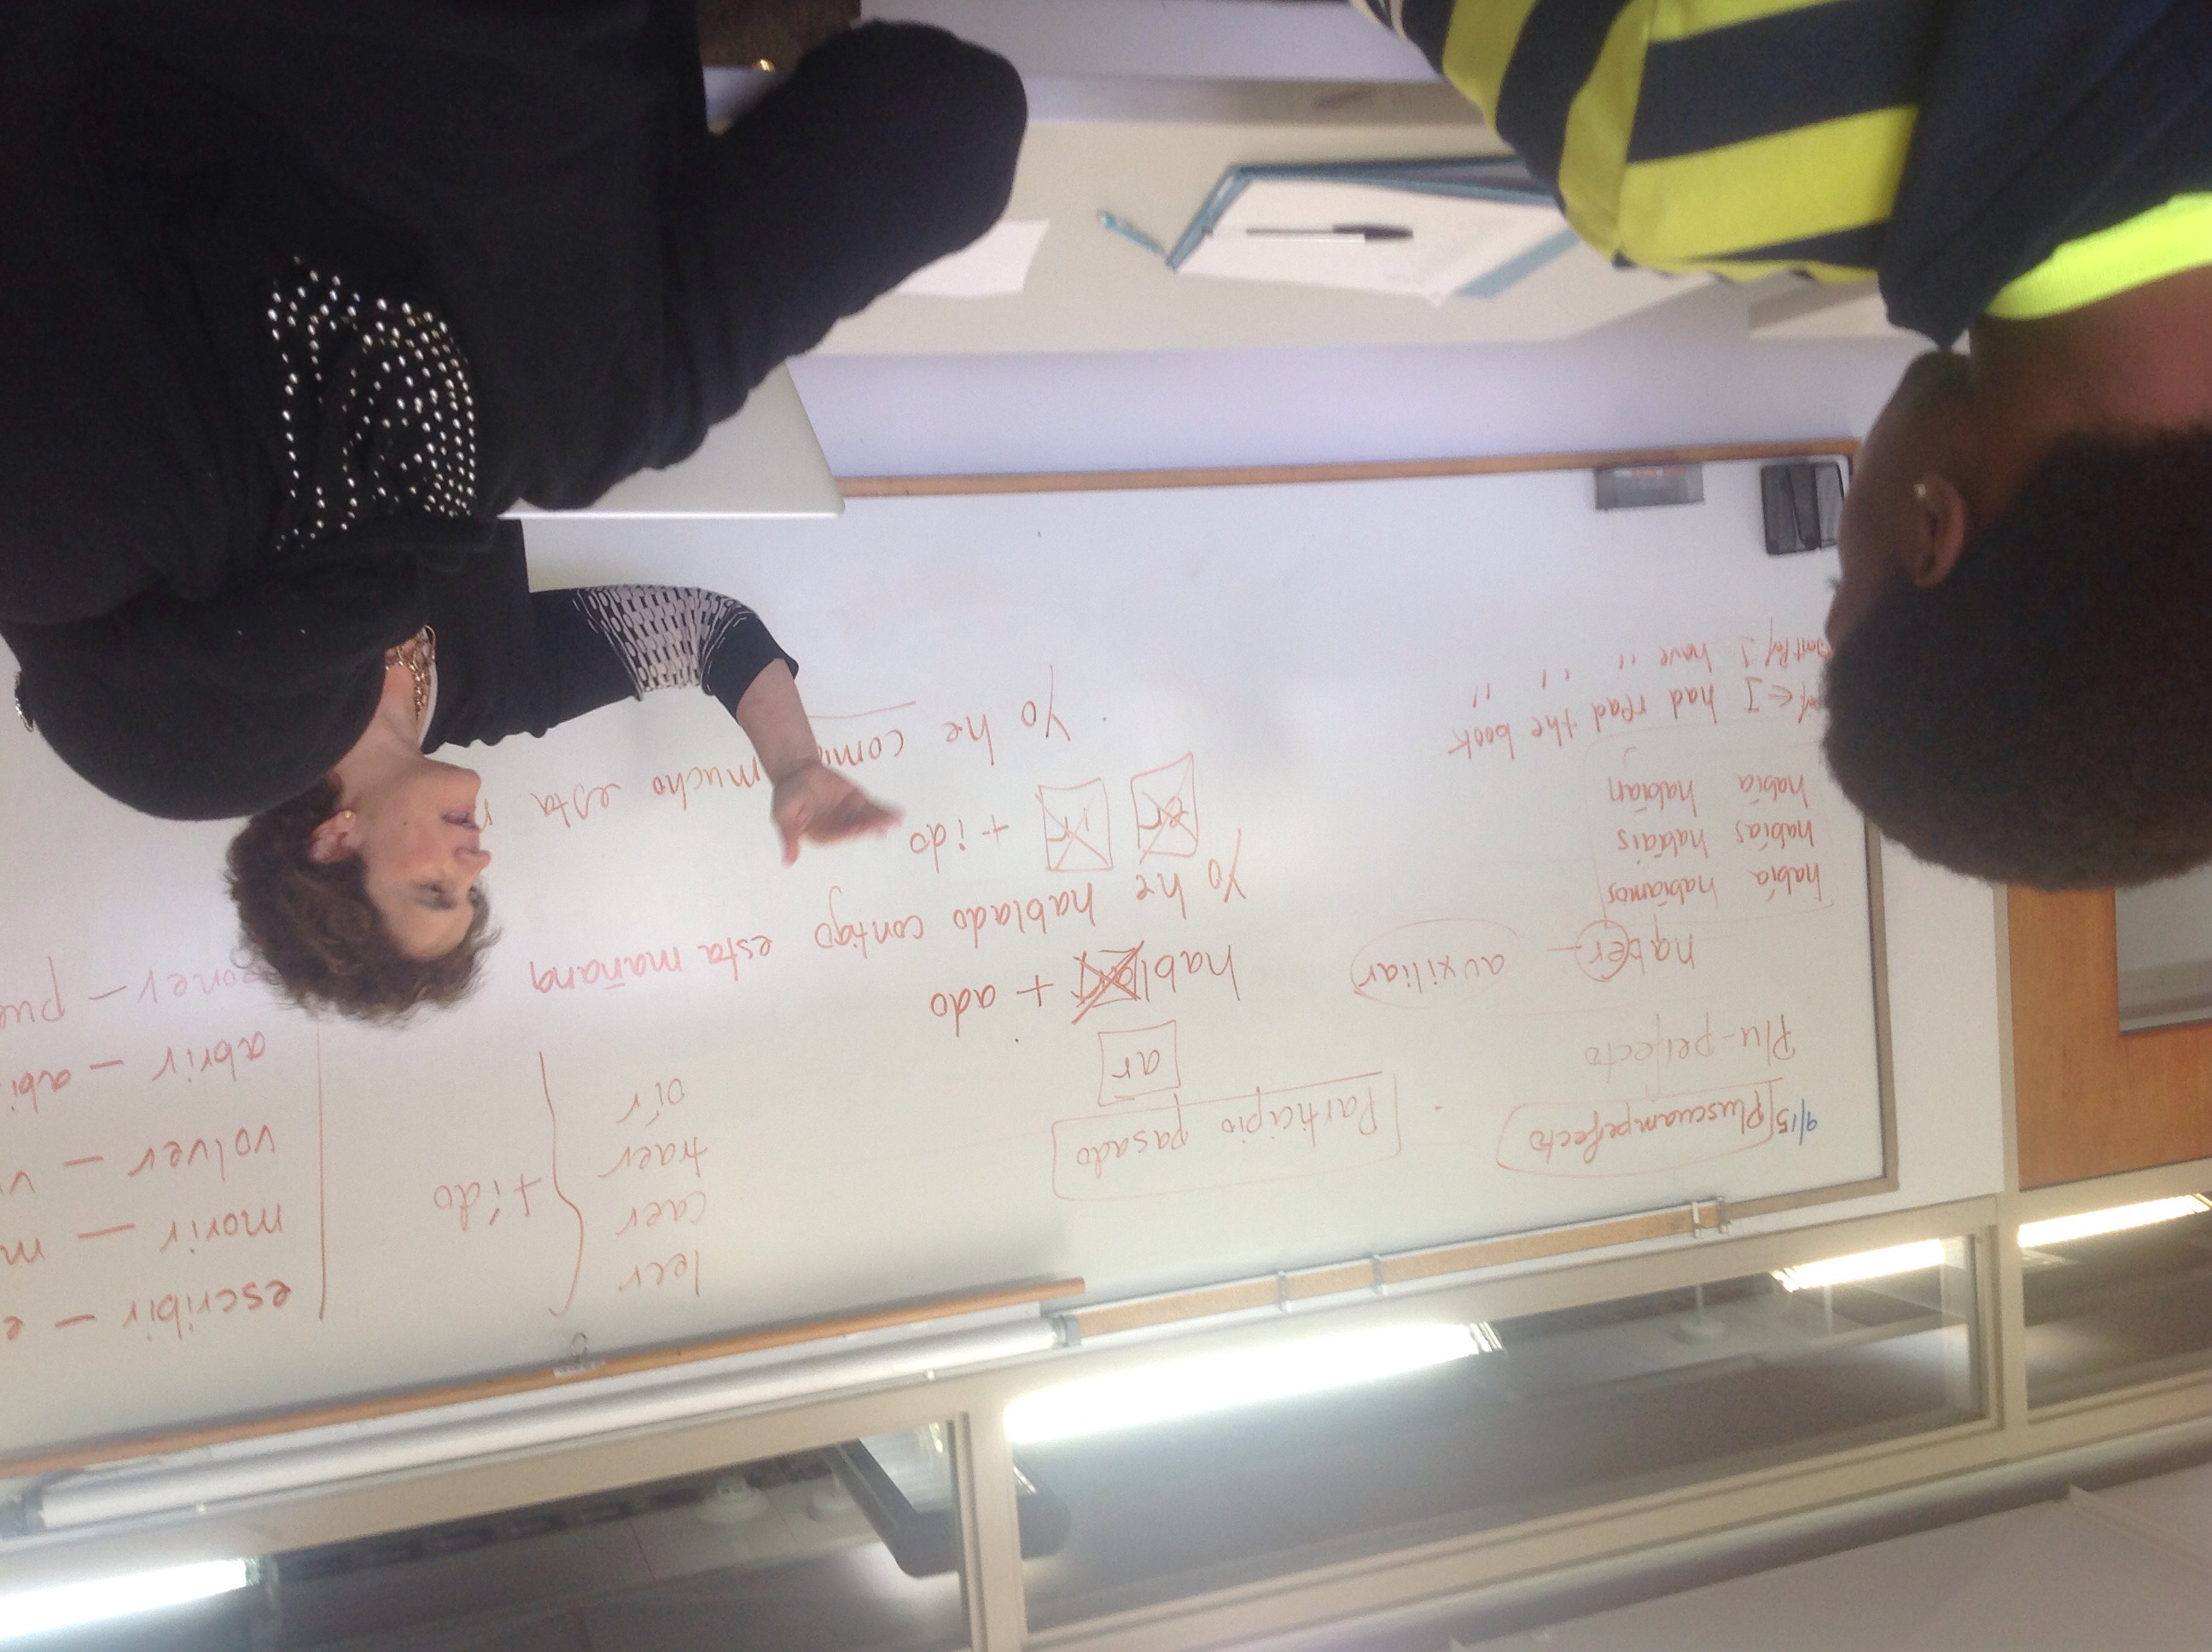 9/15 Pluscuamperfecto
Plu-perfecto
haber — auxiliar
había habíamos
habías habíais
había habían
I had read the book
I have " " " "
Participio pasado
ar
hablar + ado
Yo he hablado contigo esta mañana
er ir + ido
Yo he mucho esta
leer
caer
traer
oír
+ ido
escribir —
morir —
volver —
abrir —
poner —